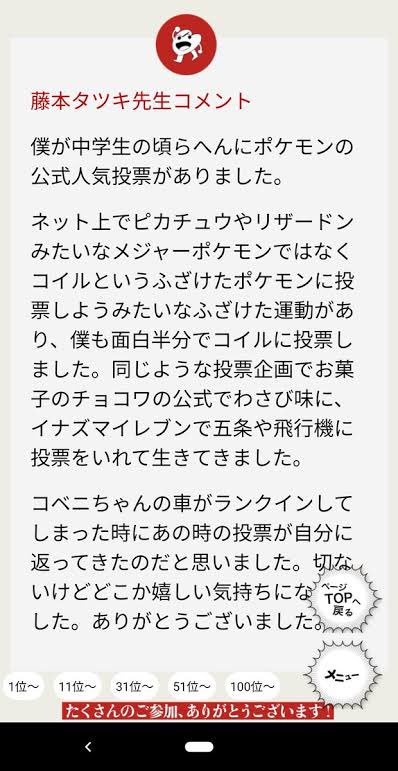 藤本タツキ先生コメント
僕が中学生の頃らへんにポケモンの
公式人気投票がありました。
ネット上でピカチュウやリザードン
みたいなメジャーポケモンではなく
コイルというふざけたポケモンに投
票しようみたいなふざけた運動があ
り、僕も面白半分でコイルに投票し
ました。同じような投票企画でお菓
子のチョコワの公式でわさび味に、
イナズマイレブンで五条や飛行機に
投票をいれて生きてきました。
コベニちゃんの車がランクインして
しまった時にあの時の投票が自分に
返ってきたのだと思いました。切な
いけどどこか嬉しい気持ちにな
した。ありがとうございました。
ページ
TOPへ
戻る
メニュー
1位〜 11位〜 31位〜 51位〜 100位〜
たくさんのご参加、ありがとうございます！